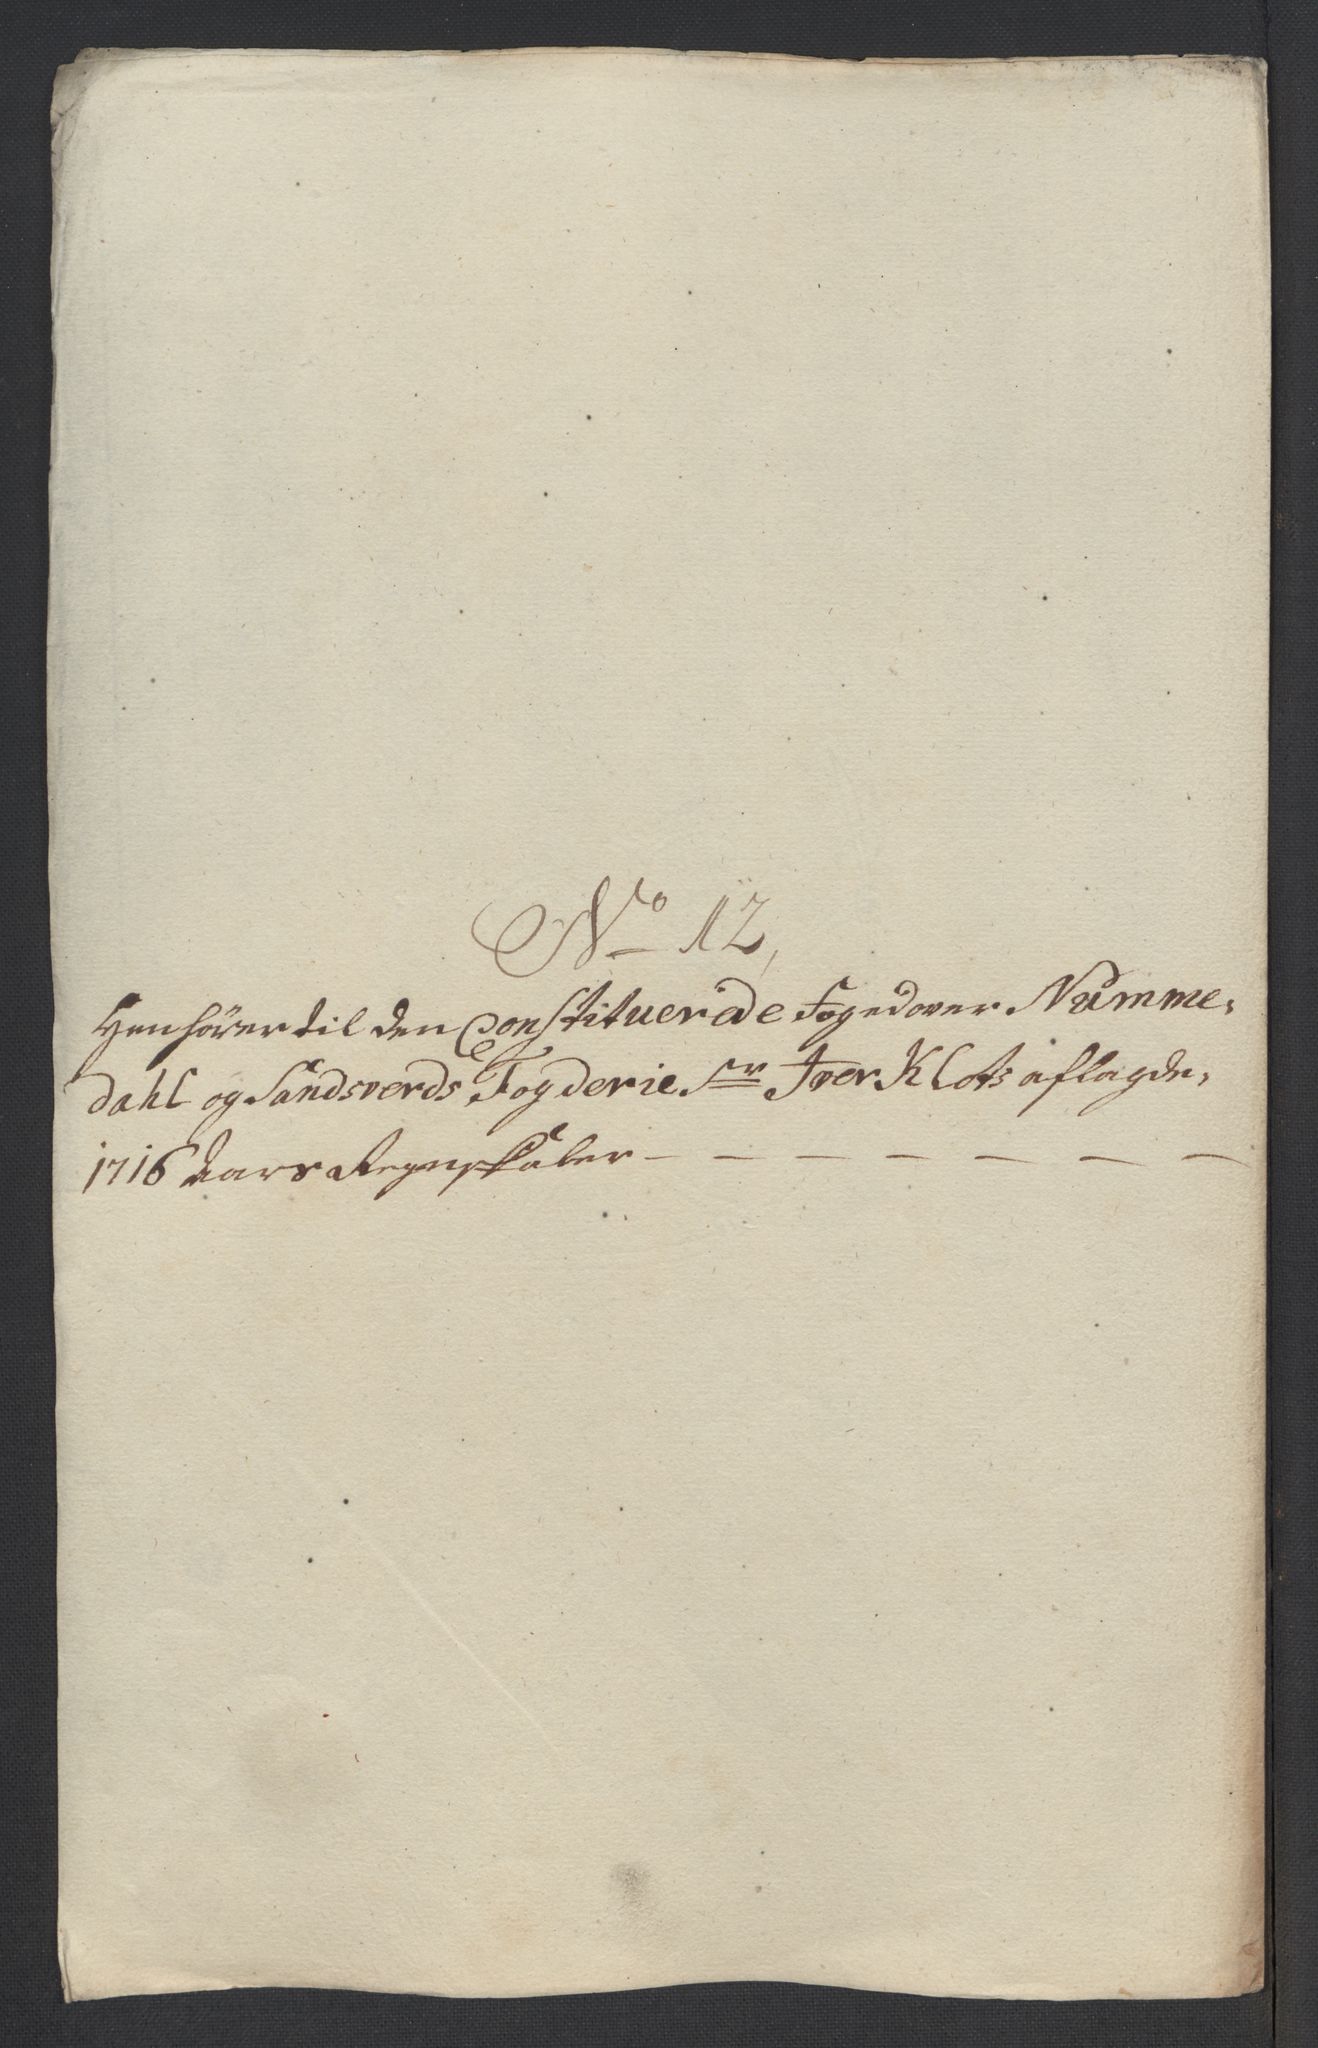 No 12,
Henhörer til den Constituerede Foged over Numme-
dahl og Sandsverds Fogderie Sr Iver Klots aflagde,
1716 Aars Regnskaber — — — — — — —